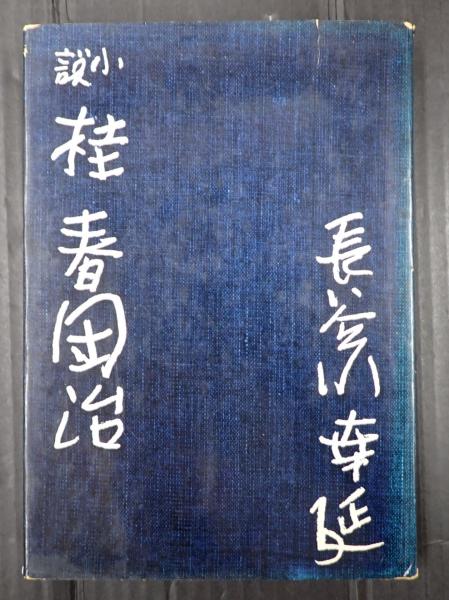 小説
桂春団治
長谷川幸延